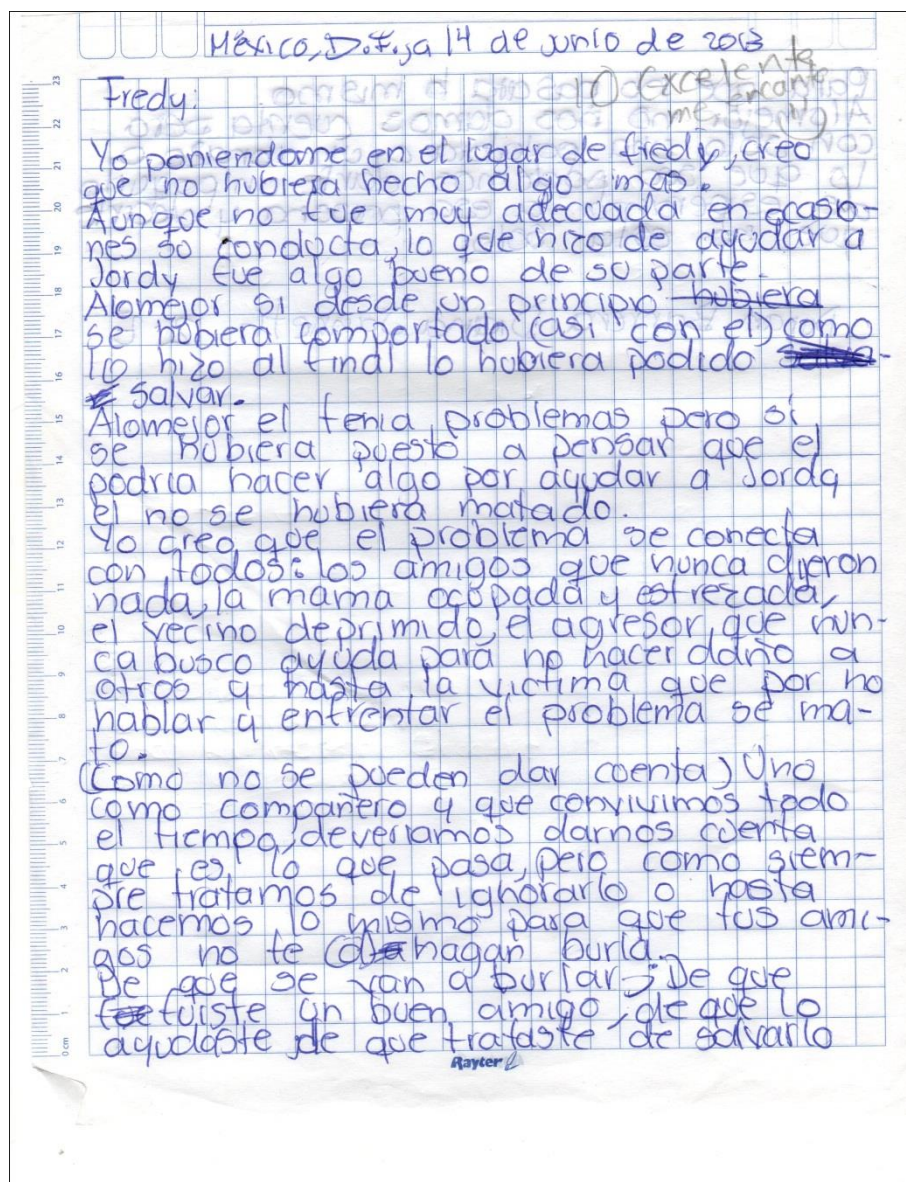 México, D.F., a 14 de junio de 2013
10 Excelente
me encanto
Fredy:
Yo poniendome en el lugar de fredy, creo
que no hubiera hecho algo mas.
Aunque no fue muy adecuada en ocasio-
nes su conducta, lo que hizo de ayudar a
Jordy fue algo bueno de su parte.
Alomejor si desde un principio hubiera
se hubiera comportado (asi con el) como
lo hizo al final lo hubiera podido
salvar.
Alomejor el tenia problemas pero si
se hubiera puesto a pensar que el
podria hacer algo por ayudar a Jordy
el no se hubiera matado.
Yo creo que el problema se conecta
con todos: los amigos que nunca dijeron
nada, la mama ocupada y estrezada,
el vecino deprimido, el agresor, que nun-
ca busco ayuda para no hacer daño a
otros y hasta la victima que por no
hablar y enfrentar el problema se ma-
to.
(Como no se pueden dar cuenta) Uno
como compañero y que convivimos todo
el tiempo, deveriamos darnos cuenta
que es, lo que pasa, pero como siem-
pre tratamos de ignorarlo o hasta
hacemos lo mismo para que tus ami-
gos no te hagan burla.
De que se van a burlar ¿De que
fuiste un buen amigo, de que lo
ayudaste, de que trataste de salvarlo
Rayter